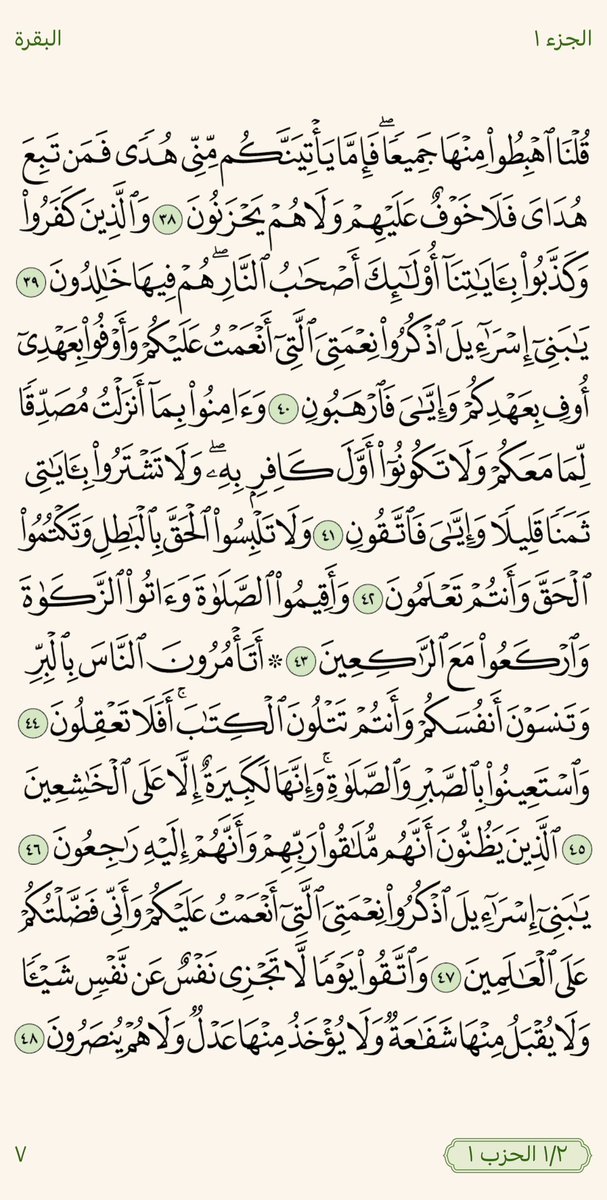 الجزء ١
البقرة
قُلْنَا ٱهْبِطُوا۟ مِنْهَا جَمِيعًۭا ۖ فَإِمَّا يَأْتِيَنَّكُم مِّنِّى هُدًۭى فَمَن تَبِعَ
هُدَاىَ فَلَا خَوْفٌ عَلَيْهِمْ وَلَا هُمْ يَحْزَنُونَ ٣٨ وَٱلَّذِينَ كَفَرُوا۟
وَكَذَّبُوا۟ بِـَٔايَـٰتِنَآ أُو۟لَـٰٓئِكَ أَصْحَـٰبُ ٱلنَّارِ ۖ هُمْ فِيهَا خَـٰلِدُونَ ٣٩
يَـٰبَنِىٓ إِسْرَٰٓءِيلَ ٱذْكُرُوا۟ نِعْمَتِىَ ٱلَّتِىٓ أَنْعَمْتُ عَلَيْكُمْ وَأَوْفُوا۟ بِعَهْدِىٓ
أُوفِ بِعَهْدِكُمْ وَإِيَّـٰىَ فَٱرْهَبُونِ ٤٠ وَءَامِنُوا۟ بِمَآ أَنزَلْتُ مُصَدِّقًۭا
لِّمَا مَعَكُمْ وَلَا تَكُونُوٓا۟ أَوَّلَ كَافِرٍۭ بِهِۦ ۖ وَلَا تَشْتَرُوا۟ بِـَٔايَـٰتِى
ثَمَنًۭا قَلِيلًۭا وَإِيَّـٰىَ فَٱتَّقُونِ ٤١ وَلَا تَلْبِسُوا۟ ٱلْحَقَّ بِٱلْبَـٰطِلِ وَتَكْتُمُوا۟
ٱلْحَقَّ وَأَنتُمْ تَعْلَمُونَ ٤٢ وَأَقِيمُوا۟ ٱلصَّلَوٰةَ وَءَاتُوا۟ ٱلزَّكَوٰةَ
وَٱرْكَعُوا۟ مَعَ ٱلرَّٰكِعِينَ ٤٣ ۞ أَتَأْمُرُونَ ٱلنَّاسَ بِٱلْبِرِّ
وَتَنسَوْنَ أَنفُسَكُمْ وَأَنتُمْ تَتْلُونَ ٱلْكِتَـٰبَ ۚ أَفَلَا تَعْقِلُونَ ٤٤
وَٱسْتَعِينُوا۟ بِٱلصَّبْرِ وَٱلصَّلَوٰةِ ۚ وَإِنَّهَا لَكَبِيرَةٌ إِلَّا عَلَى ٱلْخَـٰشِعِينَ
٤٥ ٱلَّذِينَ يَظُنُّونَ أَنَّهُم مُّلَـٰقُوا۟ رَبِّهِمْ وَأَنَّهُمْ إِلَيْهِ رَٰجِعُونَ ٤٦
يَـٰبَنِىٓ إِسْرَٰٓءِيلَ ٱذْكُرُوا۟ نِعْمَتِىَ ٱلَّتِىٓ أَنْعَمْتُ عَلَيْكُمْ وَأَنِّى فَضَّلْتُكُمْ
عَلَى ٱلْعَـٰلَمِينَ ٤٧ وَٱتَّقُوا۟ يَوْمًۭا لَّا تَجْزِى نَفْسٌ عَن نَّفْسٍۢ شَيْـًۭٔا
وَلَا يُقْبَلُ مِنْهَا شَفَـٰعَةٌۭ وَلَا يُؤْخَذُ مِنْهَا عَدْلٌۭ وَلَا هُمْ يُنصَرُونَ ٤٨
١/٢ الحزب ١
٧